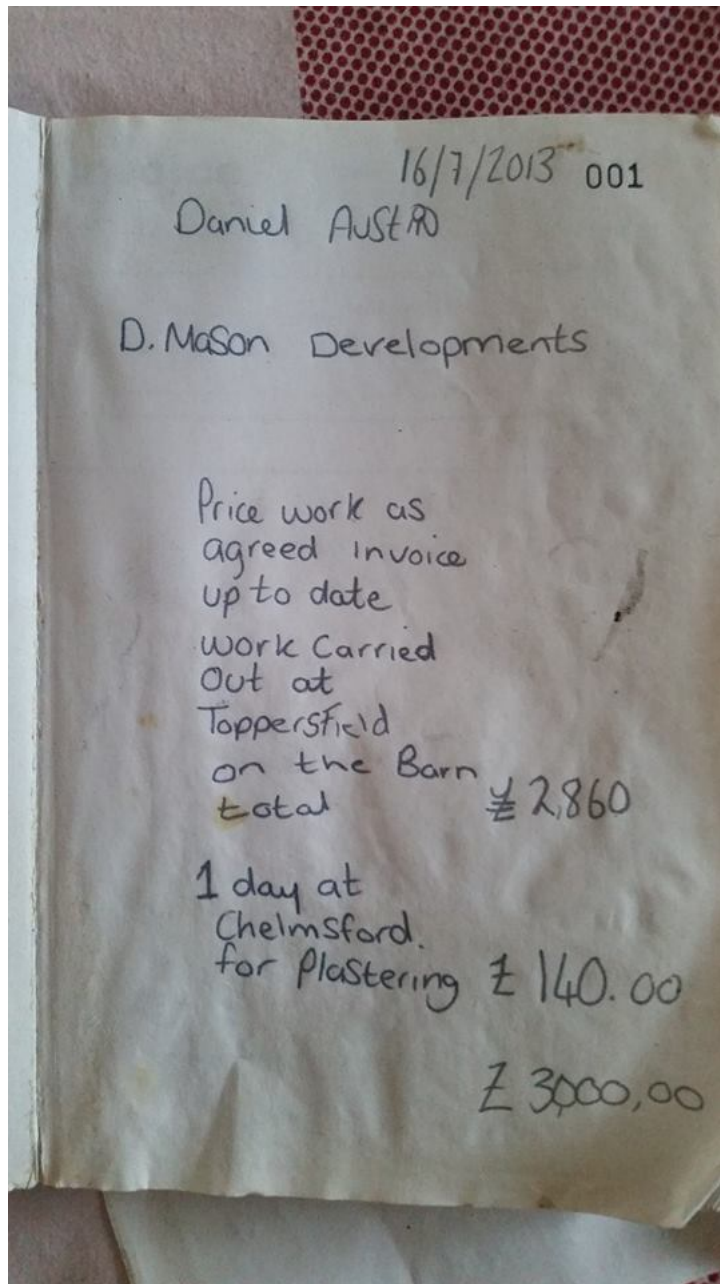 16/7/2013 001
Daniel
D. Mason Developments
Price work as
agreed invoice
up to date
work Carried
Out at
Toppersfield
on the Barn
total £2,860
1 day at
Chelmsford.
for Plastering £140.00
£3000,00